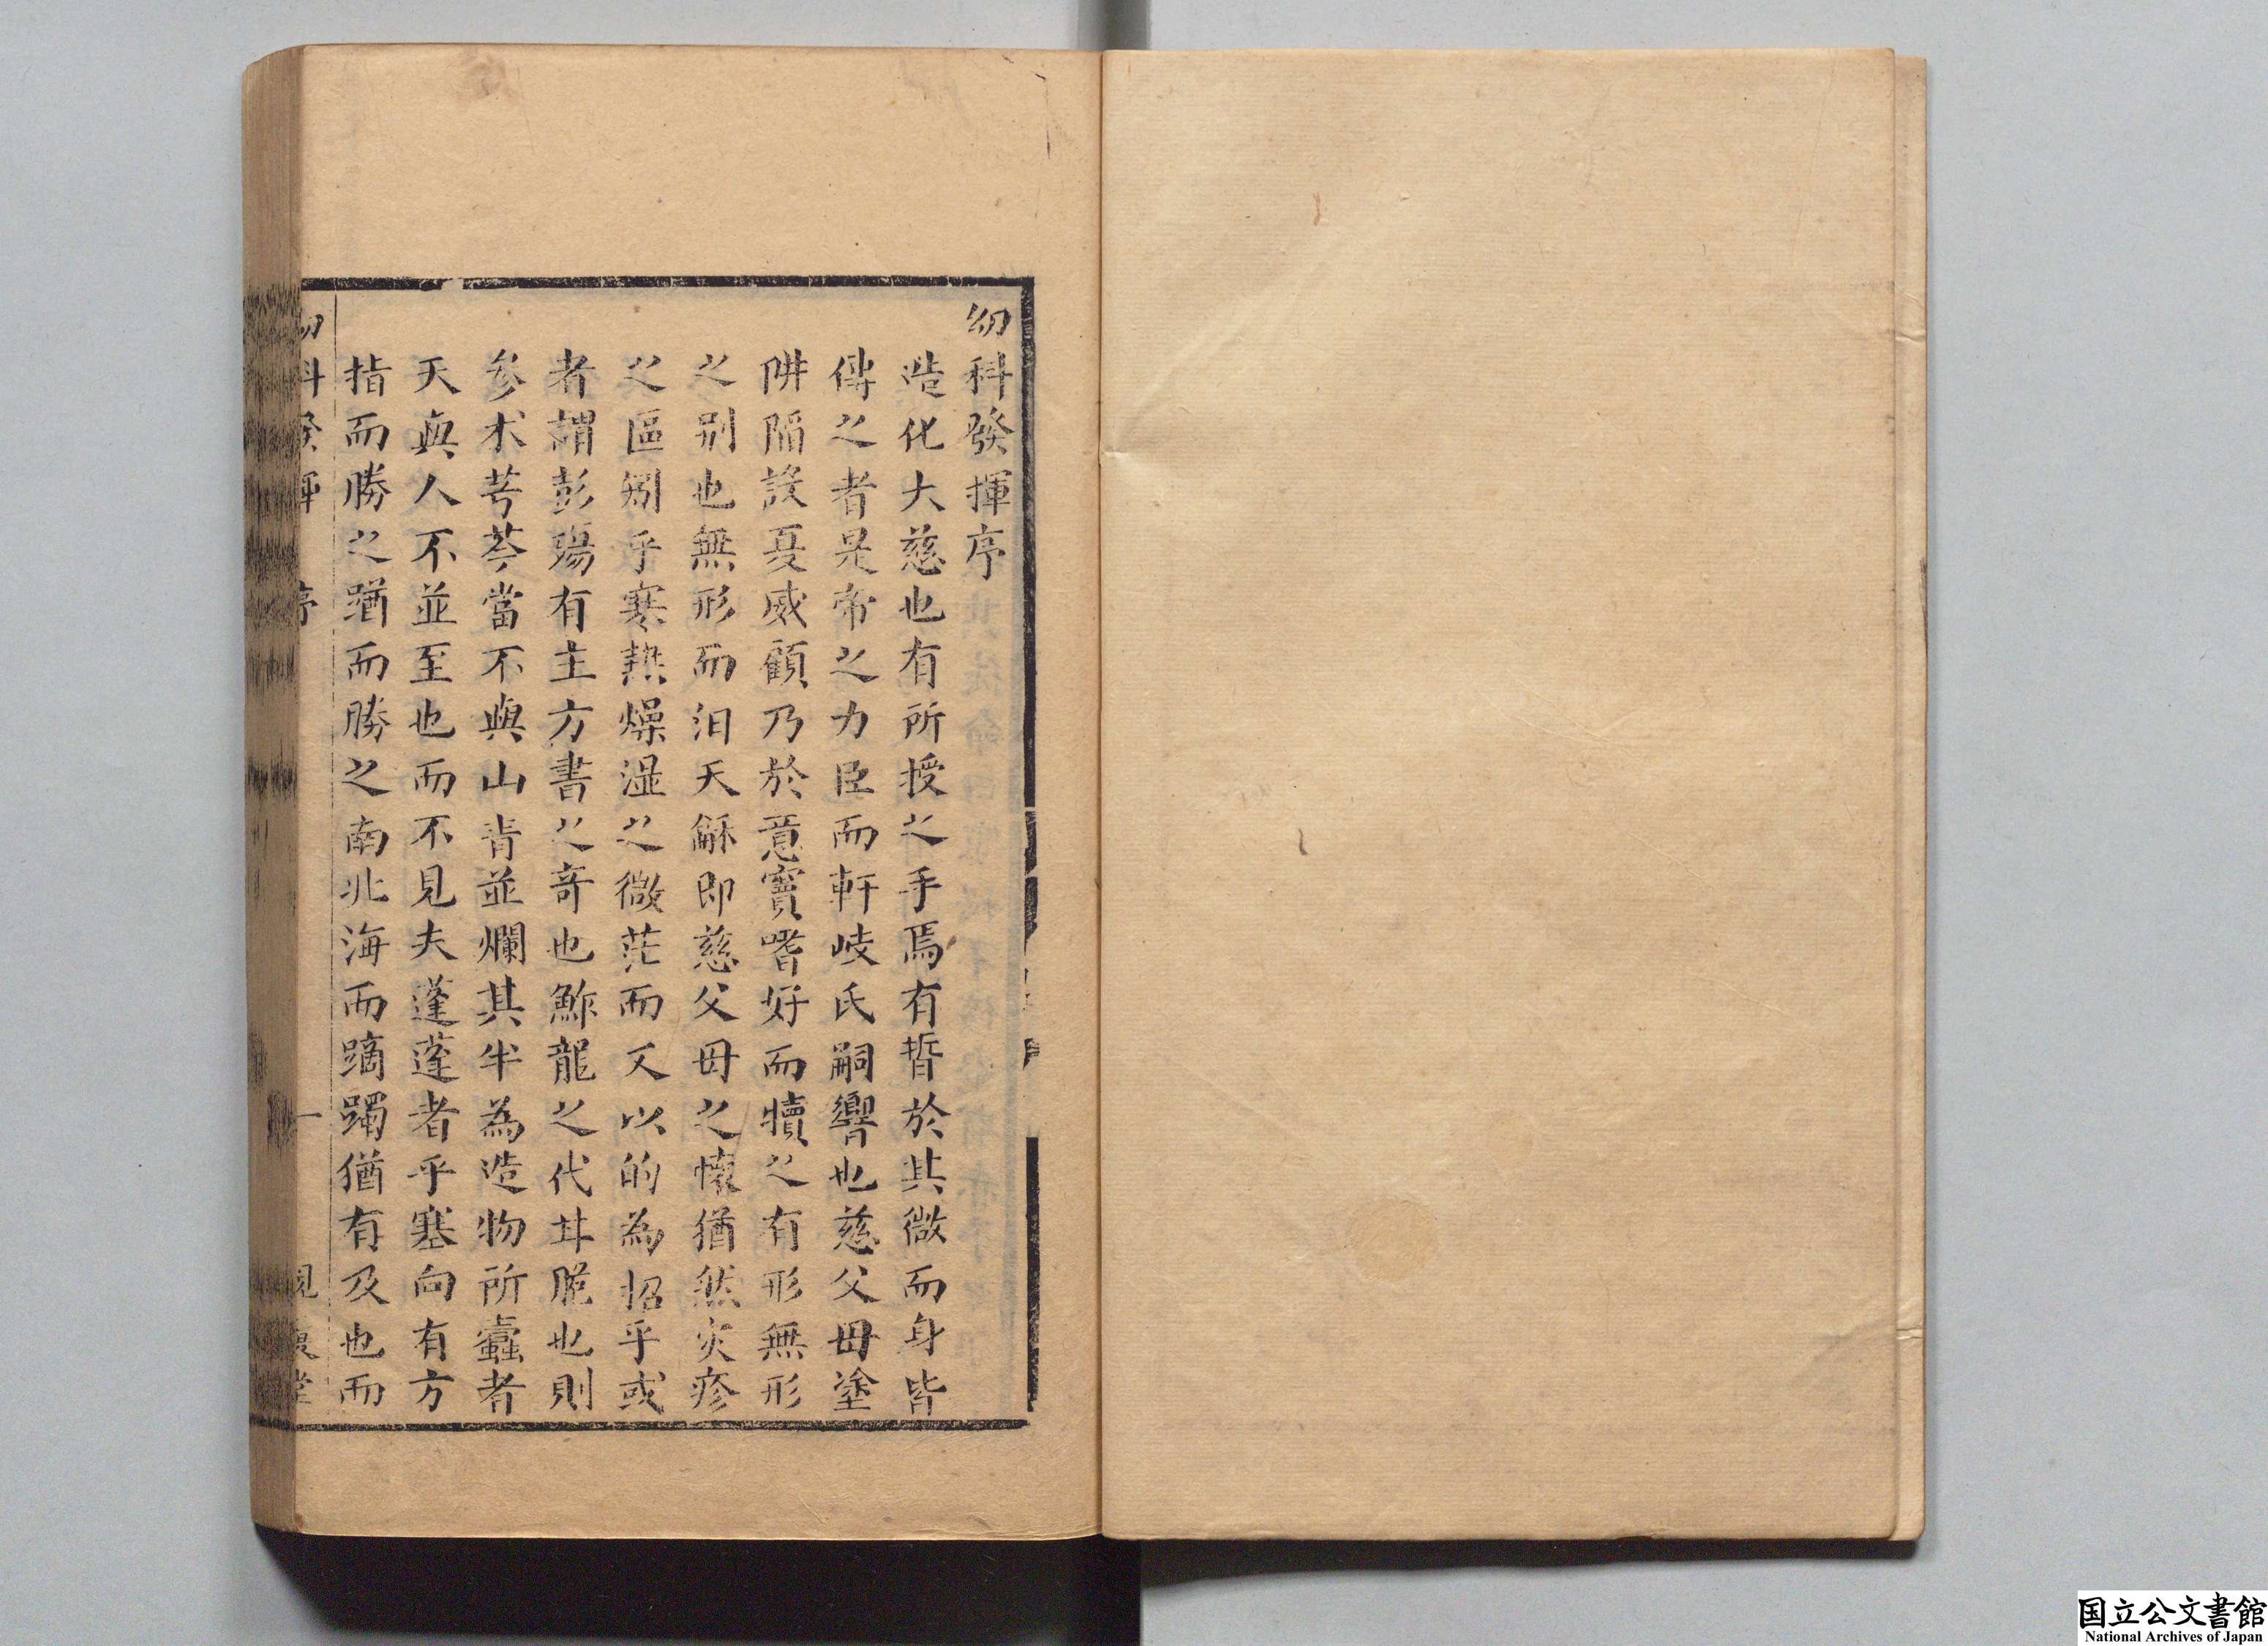 幼科發揮序
造化大慈也有所授之手焉有晢於其微而身皆
傳之者是帝之力臣而軒岐氏嗣響也慈父母塗
阱陷設戛威顧乃於意寶嗜好而犢之有形無形
之別也無形而汨天龢即慈父母之懷猶然灾疹
之區矧乎寒熱燥湿之微茫而又以的為招乎或
者謂彭殤有主方書之奇也鮓龍之代廾脆也則
參朮芎芩當不與山肯並爛其半為造物所蠹者
天與人不並至也而不見夫蓬蓬者乎塞向有方
指而勝之蹈而勝之南北海而蹢躅猶有及也而
幼科發揮 序 一
国立公文書館
National Archives of Japan